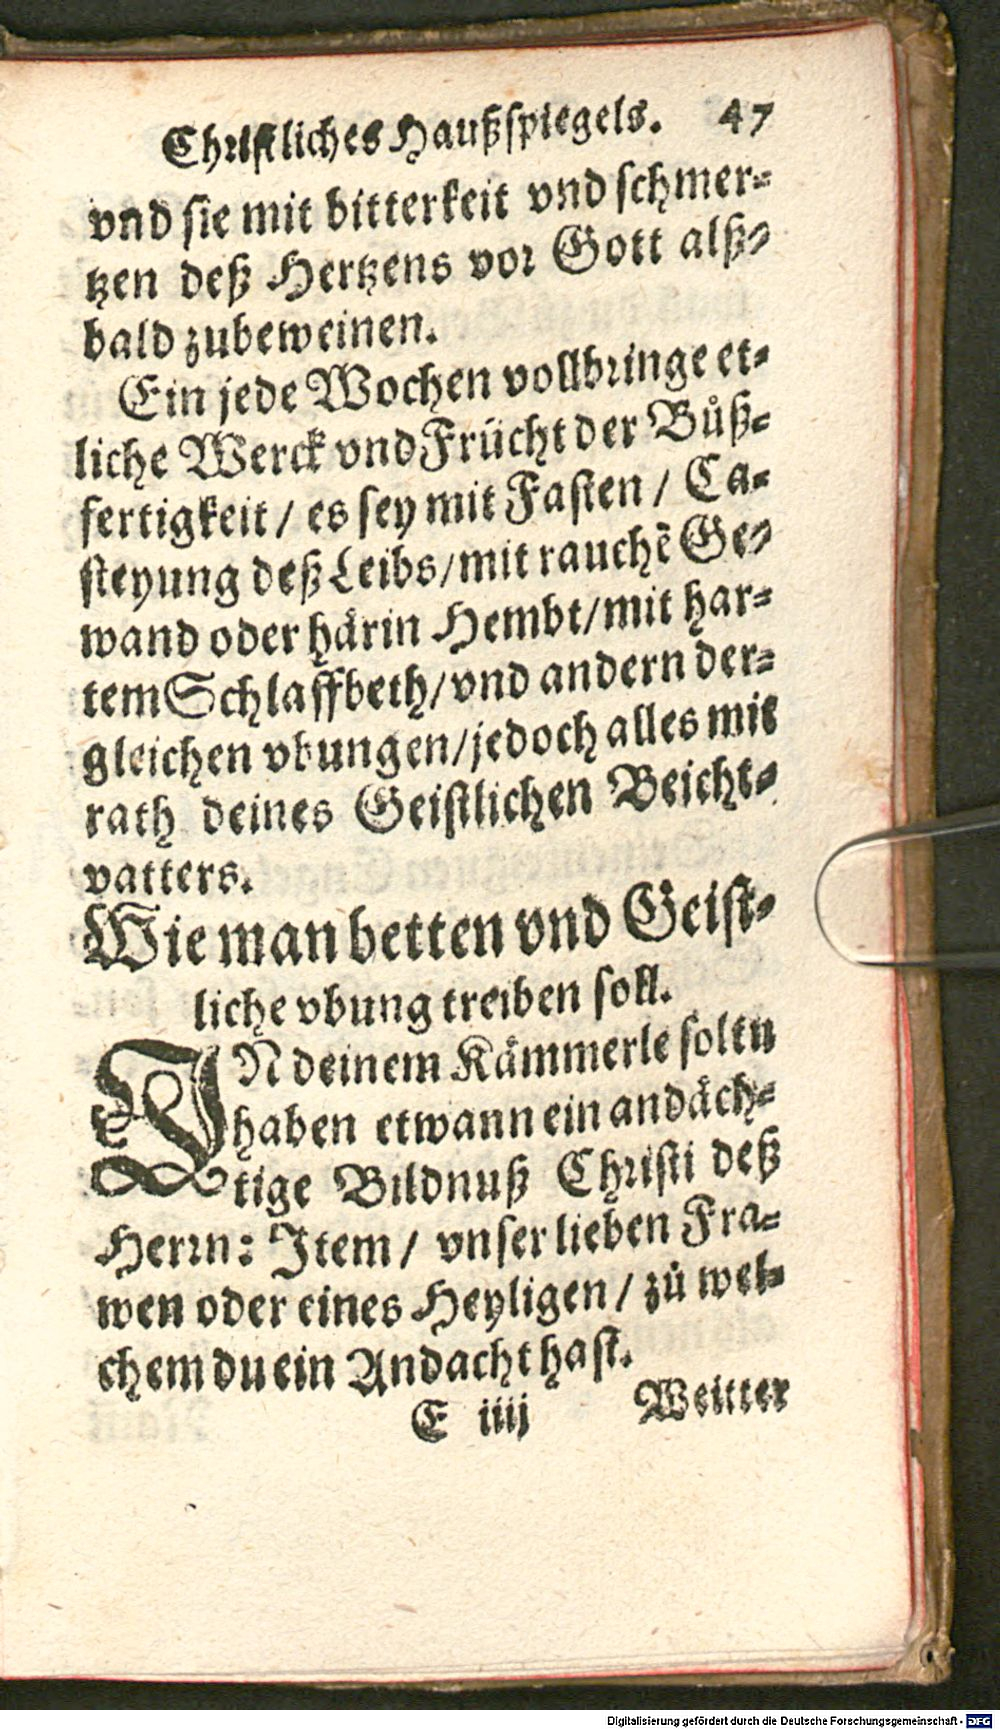 Christliches Haußspiegels. 47
vnd sie mit bitterkeit vnd schmer-
tzen deß Hertzens vor Gott alß-
bald zubeweinen.
Ein jede Wochen vollbringe et-
liche Werck vnd Frücht der Bůß-
fertigkeit / es sey mit Fasten / Ca-
steyung deß Leibs / mit rauchẽ Ge-
wand oder hårin Hembt / mit har-
tem Schlaffbeth / vnd andern der-
gleichen vbungen / jedoch alles mit
rath deines Geistlichen Beicht-
vatters.
Wie man betten vnd Geist-
liche vbung treiben soll.
IN deinem Kåmmerle soltu
haben etwann ein andåch-
tige Bildnuß Christi deß
Herrn: Item / vnser lieben Fra-
wen oder eines Heyligen / zů wel-
chem du ein Andacht hast.
E iiij Weitter
Digitalisierung gefördert durch die Deutsche Forschungsgemeinschaft - DFG